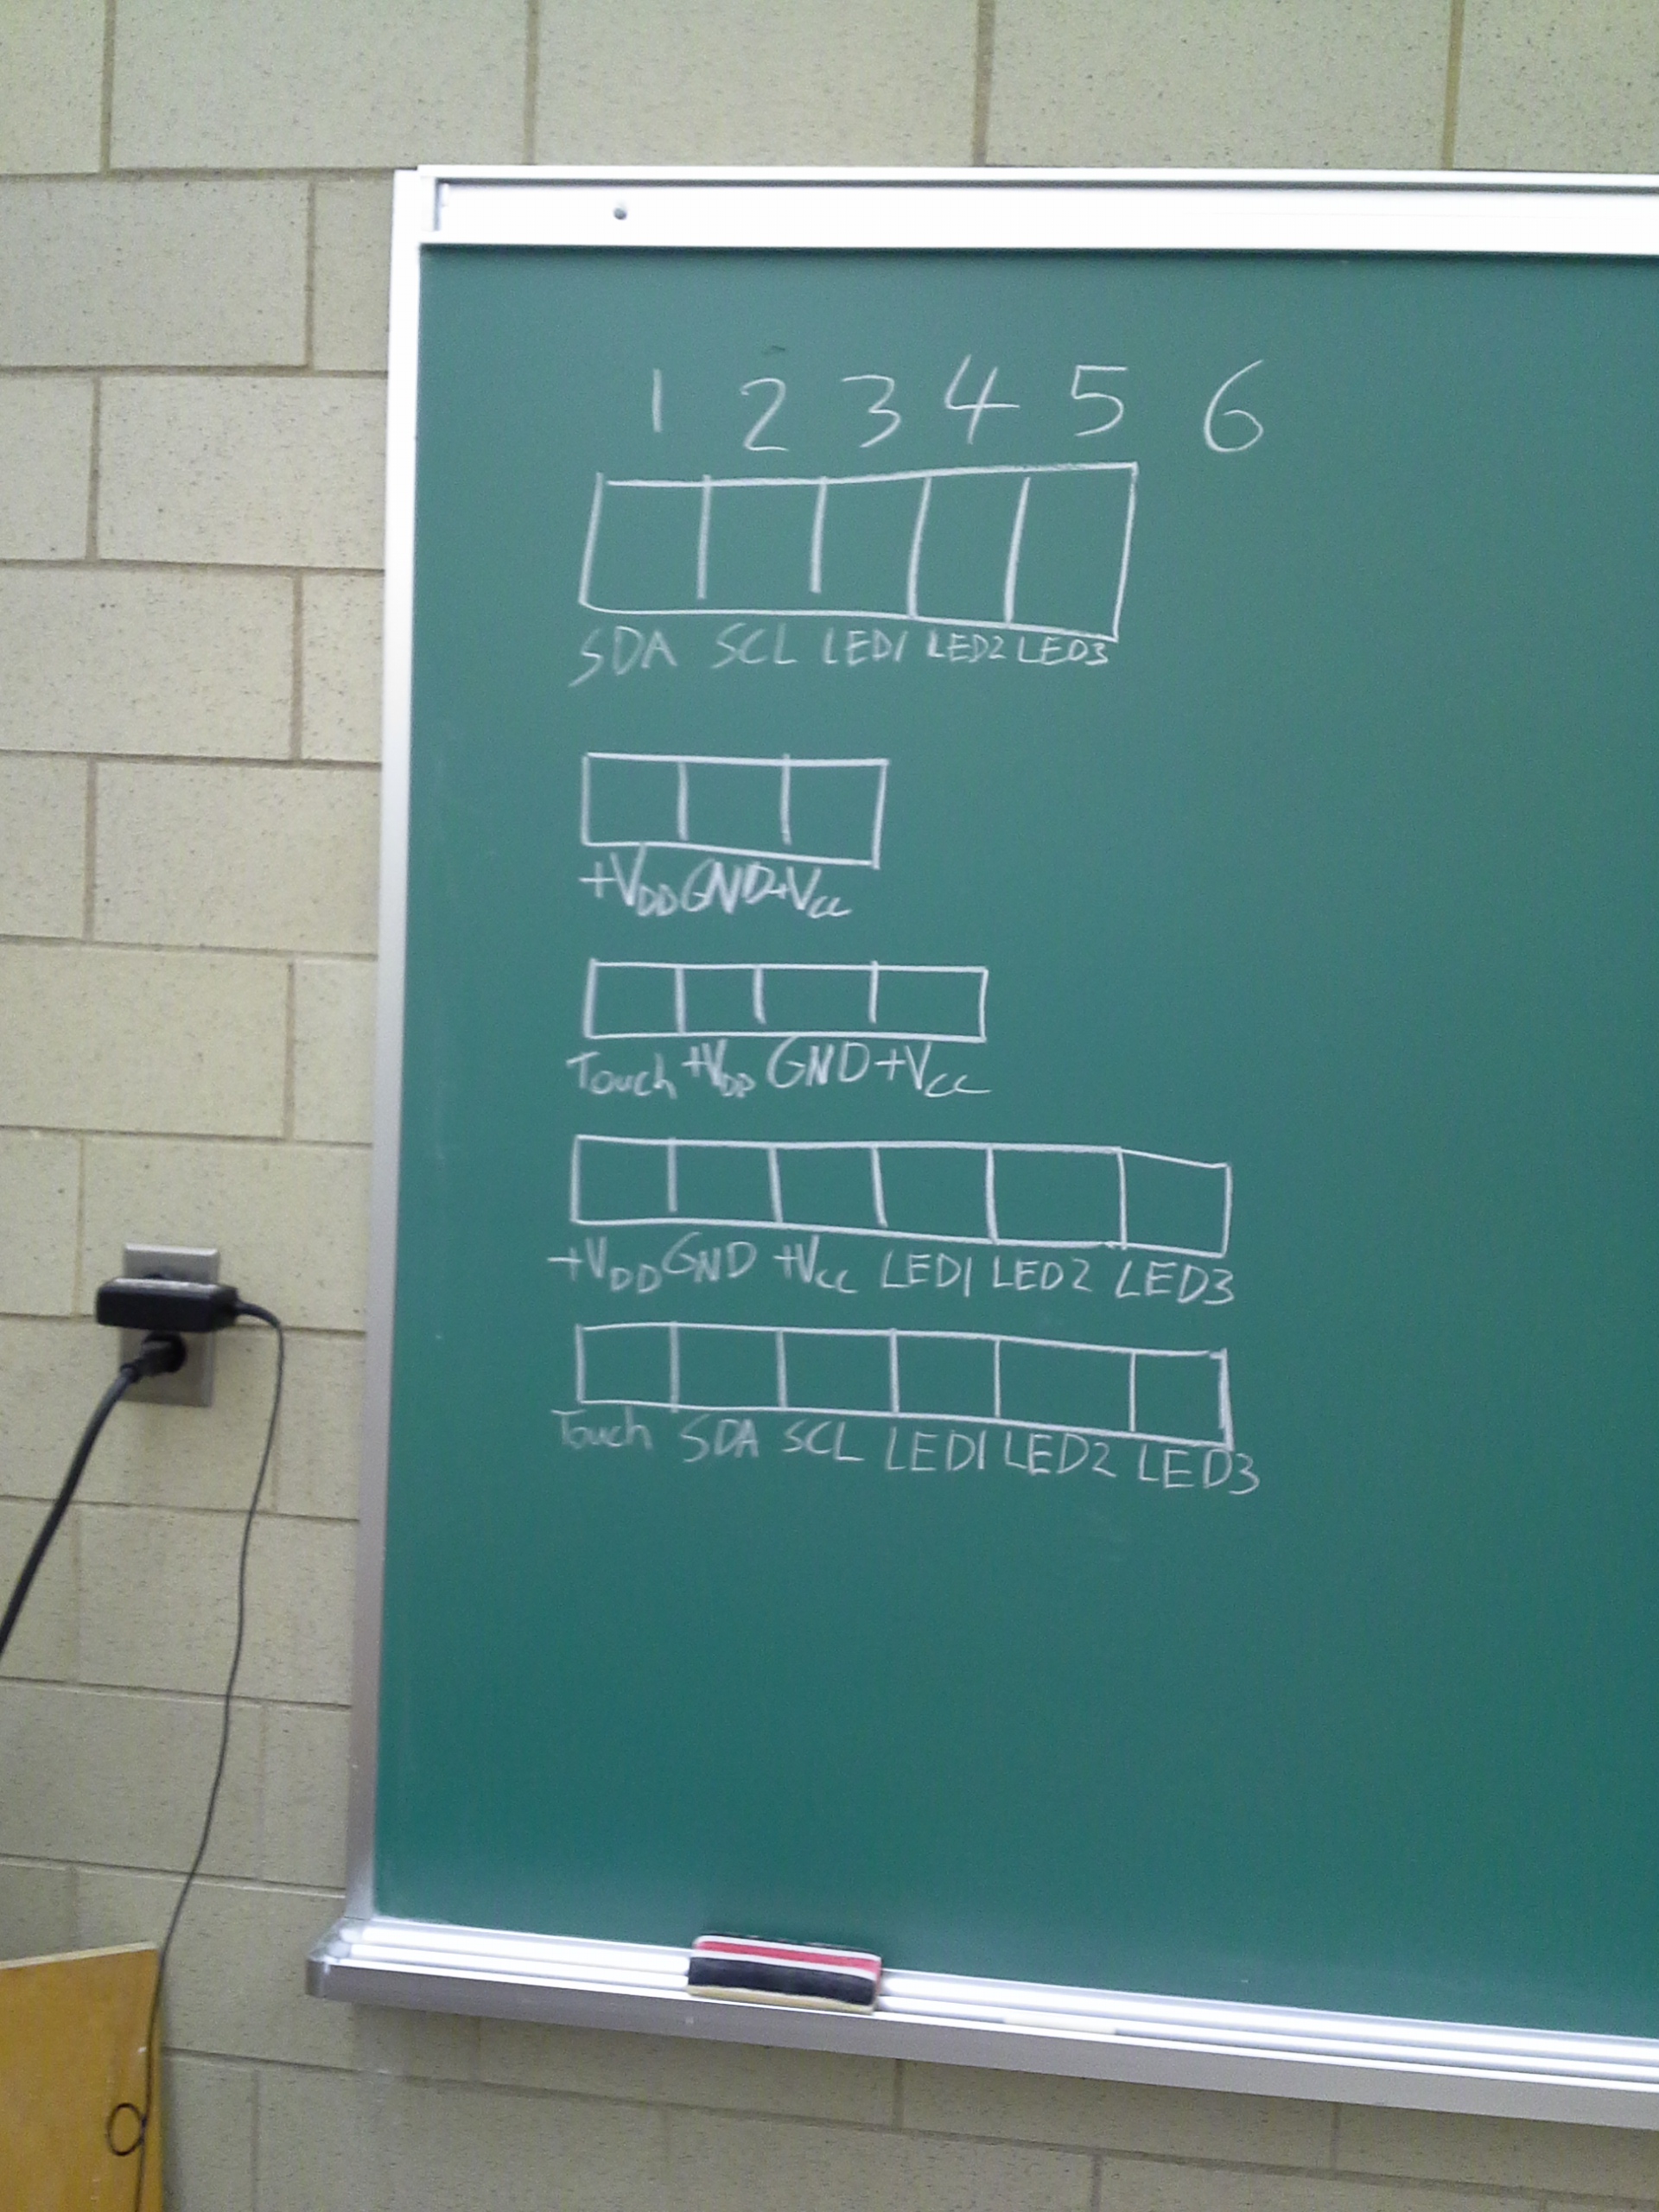 1 2 3 4 5 6
SDA SCL LED1 LED2 LED3
+VDD GND +VCC
Touch +VDD GND +VCC
+VDD GND +VCC LED1 LED2 LED3
Touch SDA SCL LED1 LED2 LED3